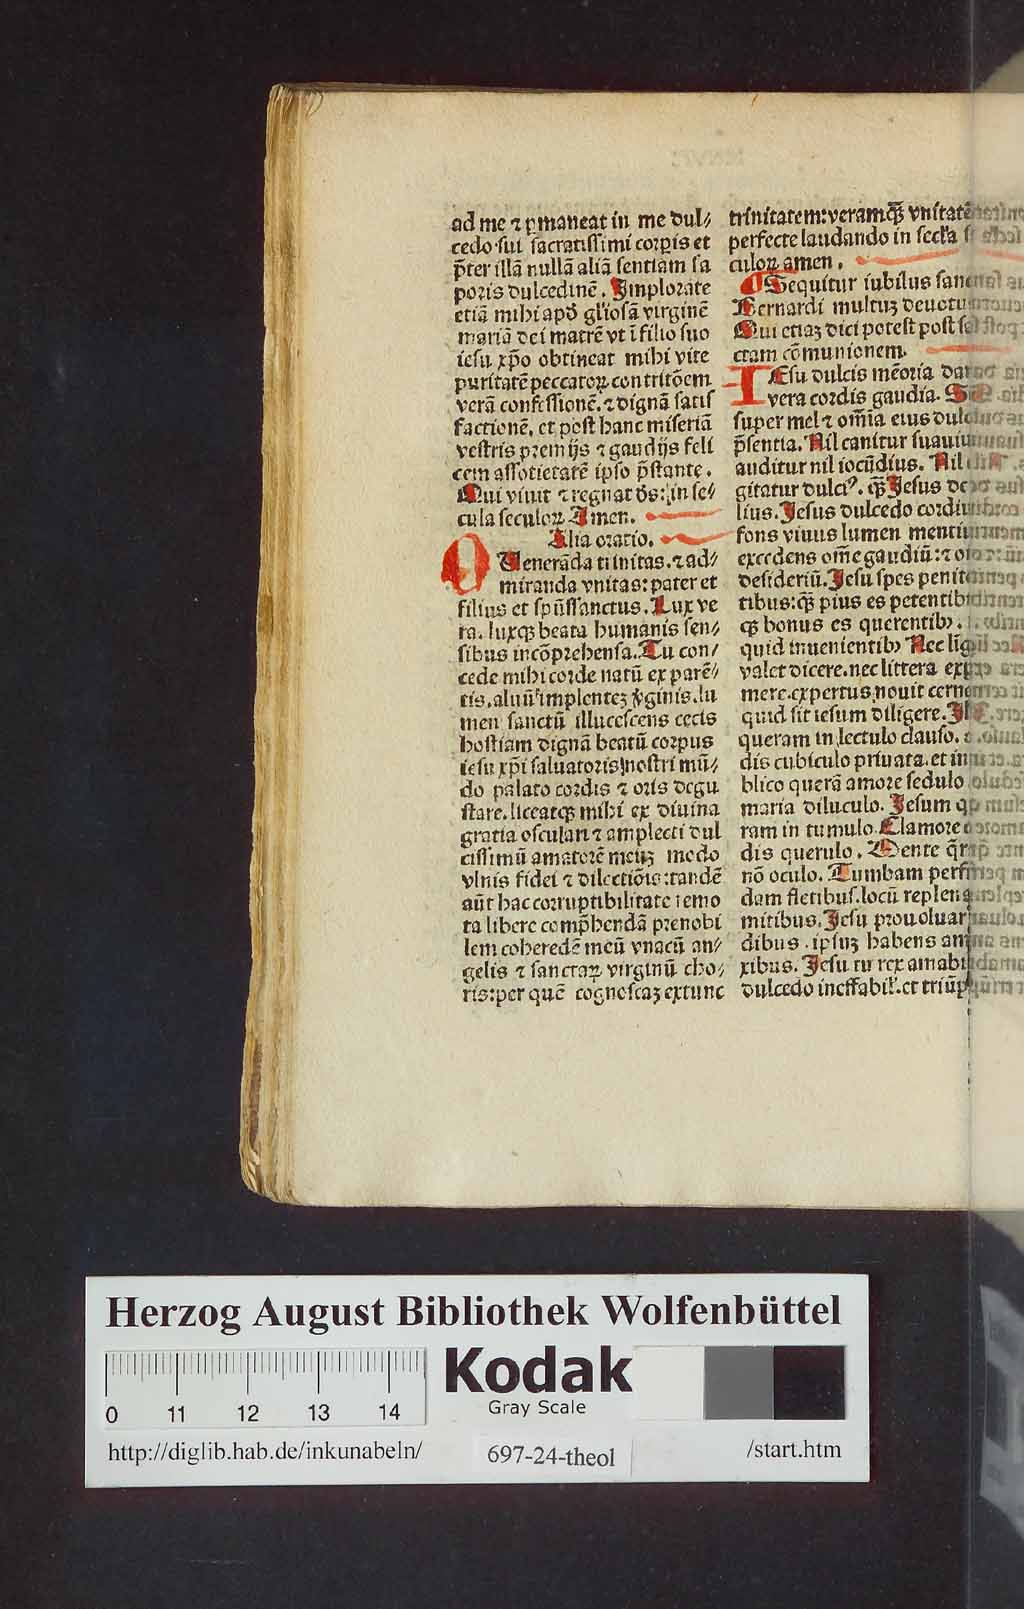 ad me ⁊ ꝑmaneat in me dul⸗
cedo sui sacratissimi corꝑis et
p̄ter illā nullā aliā sentiam sa
poris dulcedinē. Implorate
etiā mihi apđ gl'iosā virginē
mariā dei matrē vt ī filio suo
iesu xp̄o obtineat mihi vite
puritatē peccatoꝝ contritōem
verā confessionē. ⁊ dignā satis
factionē, et post hanc miseriā
vestris premijs ⁊ gaudijs feli
cem assotietatē ipso p̄stante.
Qui viuit ⁊ regnat ds̄: in se⸗
cula seculoꝝ Amen.
Alia oratio.
O Veneranda trinitas. ⁊ ad⸗
miranda vnitas: pater et
filius et sp̄ussanctus. Lux ve
ra. luxqꝫ beata humanis sen⸗
sibus incōprehensa. Tu con⸗
cede mihi corde natū ex parē⸗
tis. aluū implentez v̓ginis. lu
men sanctū illucescens cecis
hostiam dignā beatū corpus
iesu xp̄i saluatoris nostri mū⸗
do palato cordis ⁊ oris degu
stare. liceatqꝫ mihi ex diuina
gratia osculari ⁊ amplecti dul
cissimū amatorē meuꝫ modo
vlnis fidei ⁊ dilectiōis: tandē
aūt hac corruptibilitate remo
ta libere comp̄hendā prenobi
lem coheredē meū vnacū an⸗
gelis ⁊ sanctaꝝ virginū cho⸗
ris: per quē cognoscaꝫ ex tunc
trinitatem: veramqꝫ vnitatē
perfecte laudando in sec̄la
culoꝝ amen.
Sequitur iubilus
Bernardi multuꝫ
Qui etiaꝫ dici potest post
ctam cōmunionem.
IEsu dulcis mēoria
vera cordis gaudia.
super mel ⁊ om̄ia eius
p̄sentia. Nil canitur
auditur nil iocūdius. Nil
gitatur dulciꝰ. qꝫ Jesus
lius. Jesus dulcedo
fons viuus lumen
excedens om̄e gaudiū: ⁊
desideriū. Jesu spes
tibus: qꝫ pius es
qꝫ bonus es querentibꝫ.
quid inuenientibꝫ Nec
valet dicere. nec littera
mere. expertus nouit
quid sit iesum diligere.
queram in lectulo clauso.
dis cubiculo priuata. et in
blico querā amore sedulo
maria diluculo. Jesum
ram in tumulo. Clamore
dis querulo. Mente
nō oculo. Tumbam
dam fletibus. locū
mitibus. Jesu
dibus. ipsuꝫ habens
xibus. Jesu tu rex
dulcedo ineffabil'. et
Herzog August Bibliothek Wolfenbüttel
0 11 12 13 14
Kodak
Gray Scale
http://diglib.hab.de/inkunabeln/ 697-24-theol /start.htm